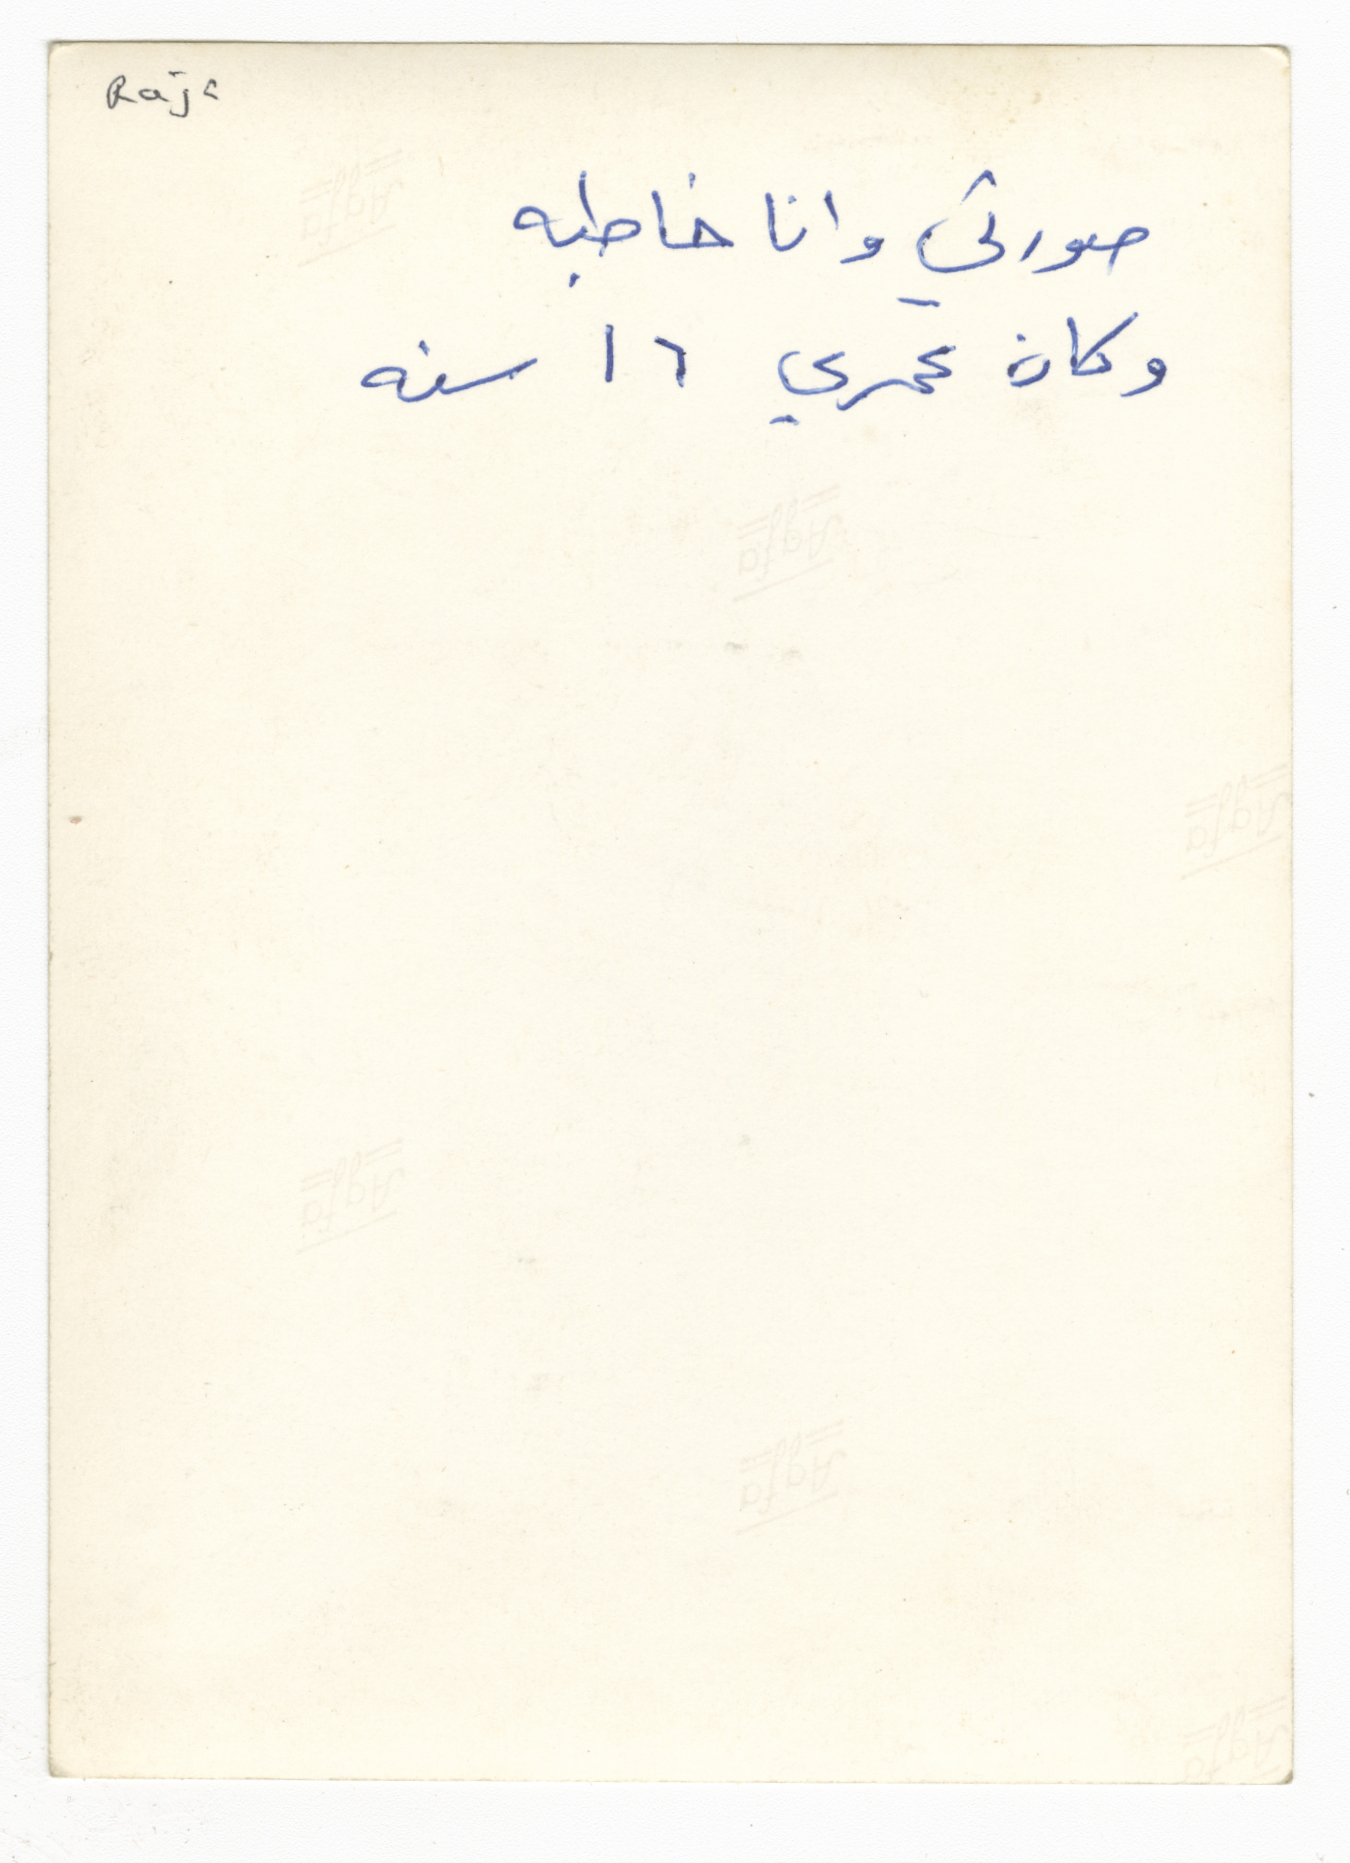 Raja
صورتي وانا خاطبه
وكان عمري ١٦ سنه
Agfa
Agfa
Agfa
Agfa
Agfa
Agfa